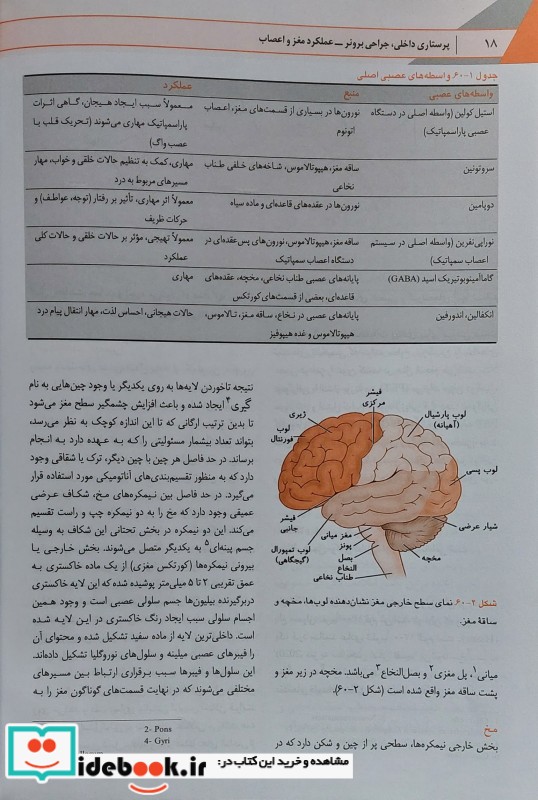 ۱۸ | پرستاری داخلی، جراحی برونر ــ عملکرد مغز و اعصاب
جدول ۱-۶۰. واسطه‌های عصبی اصلی
واسطه‌های عصبی منبع عملکرد
استیل کولین (واسطه اصلی در دستگاه نورون‌ها در بسیاری از قسمت‌های مغز، اعصاب معمولاً سبب ایجاد هیجان، گاهی اثرات
عصبی پاراسمپاتیک) اتونوم پاراسمپاتیک مهاری می‌شوند (تحریک قلب با
عصب واگ)
سروتونین ساقه مغز، هیپوتالاموس، شاخه‌های خلفی طناب مهاری، کمک به تنظیم حالات خلقی و خواب، مهار
نخاعی مسیرهای مربوط به درد
دوپامین نورون‌ها در عقده‌های قاعده‌ای و ماده سیاه معمولاً اثر مهاری، تأثیر بر رفتار (توجه، عواطف) و
حرکات ظریف
نوراپی‌نفرین (واسطه اصلی در سیستم ساقه مغز، هیپوتالاموس، نورون‌های پس‌عقده‌ای در معمولاً تهیجی، مؤثر بر حالات خلقی و حالات کلی
اعصاب سمپاتیک) دستگاه اعصاب سمپاتیک عملکرد
گاماآمینوبوتیریک اسید (GABA) پایانه‌های عصبی طناب نخاعی، مخچه، عقده‌های مهاری
قاعده‌ای، بعضی از قسمت‌های کورتکس
انکفالین، اندورفین پایانه‌های عصبی در نخاع، ساقه مغز، تالاموس، حالات هیجانی، احساس لذت، مهار انتقال پیام درد
هیپوتالاموس و غده هیپوفیز
قیشر
مرکزی
لوب پاریتال
(آهیانه)
زیری
لوب
فورنتال
لوب پسی
شیار عرضی
مخچه
قیشر
جانبی
لوب تمپورال
(گیجگاهی)
مغز میانی
پونز
بصل
النخاع
طناب نخاعی
شکل ۲-۶۰. نمای سطح خارجی مغز نشان‌دهنده لوب‌ها، مخچه و
ساقهٔ مغز.
میانی۱، پل مغزی۲ و بصل‌النخاع۳ می‌باشد. مخچه در زیر مغز و
پشت ساقه مغز واقع شده است (شکل ۲-۶۰).
مخ
بخش خارجی نیمکره‌ها، سطحی پر از چین و شکن دارد که در
نتیجه تاخوردن لایه‌ها به روی یکدیگر یا وجود چین‌هایی به نام
گیری۴ ایجاد شده و باعث افزایش چشمگیر سطح مغز می‌شود
تا بدین ترتیب ارگانی که تا این اندازه کوچک به نظر می‌رسد،
بتواند تعداد بیشمار مسئولیتی را که به عهده دارد به انجام
برساند. در حد فاصل هر چین با چین دیگر، ترک یا شقاقی وجود
دارد که به منظور تقسیم‌بندی‌های آناتومیکی مورد استفاده قرار
می‌گیرد. در حد فاصل بین نیمکره‌های مخ، شکاف عرضی
عمیقی وجود دارد که مخ را به دو نیمکره چپ و راست تقسیم
می‌کند. این دو نیمکره در بخش تحتانی این شکاف به وسیله
جسم پینه‌ای۵ به یکدیگر متصل می‌شوند. بخش خارجی یا
بیرونی نیمکره‌ها (کورتکس مغزی) از یک ماده خاکستری به
عمق تقریبی ۲ تا ۵ میلی‌متر پوشیده شده که این لایه خاکستری
دربرگیرنده بیلیون‌ها جسم سلولی عصبی است و وجود همین
اجسام سلولی سبب ایجاد رنگ خاکستری در این لایه شده
است. داخلی‌ترین لایه از ماده سفید تشکیل شده و محتوای آن
را فیبرهای عصبی میلینه و سلول‌های نوروگلیا تشکیل داده‌اند.
این سلول‌ها و فیبرها سبب برقراری ارتباط بین مسیرهای
مختلفی می‌شوند که در نهایت قسمت‌های گوناگون مغز را به
2- Pons
4- Gyri
مشاهده و خرید این کتاب در:
idebook.ir